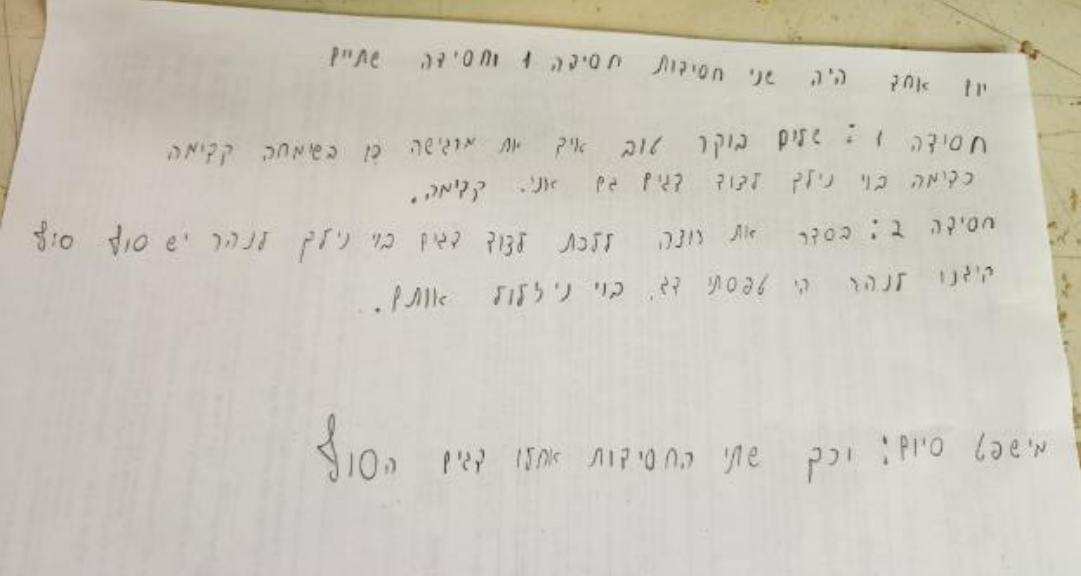 יום אחד היה שני חסידות חסידה 1 וחסידה שתיים
חסידה 1: שלום בוקר טוב איך את מרגישה כן בשימחה קדימה
כדימה בוי נילך לצוד דגים גם אני. קדימה.
חסידה 2: בסדר את רוצה ללכת לצוד דגים בוי נילך לנהר יש סוף סוף
היגנו לנהר הי תפסתי דג. בוי ניזלול אותם..
מישפט סיום: וכך שתי החסידות אכלו דגים הסוף